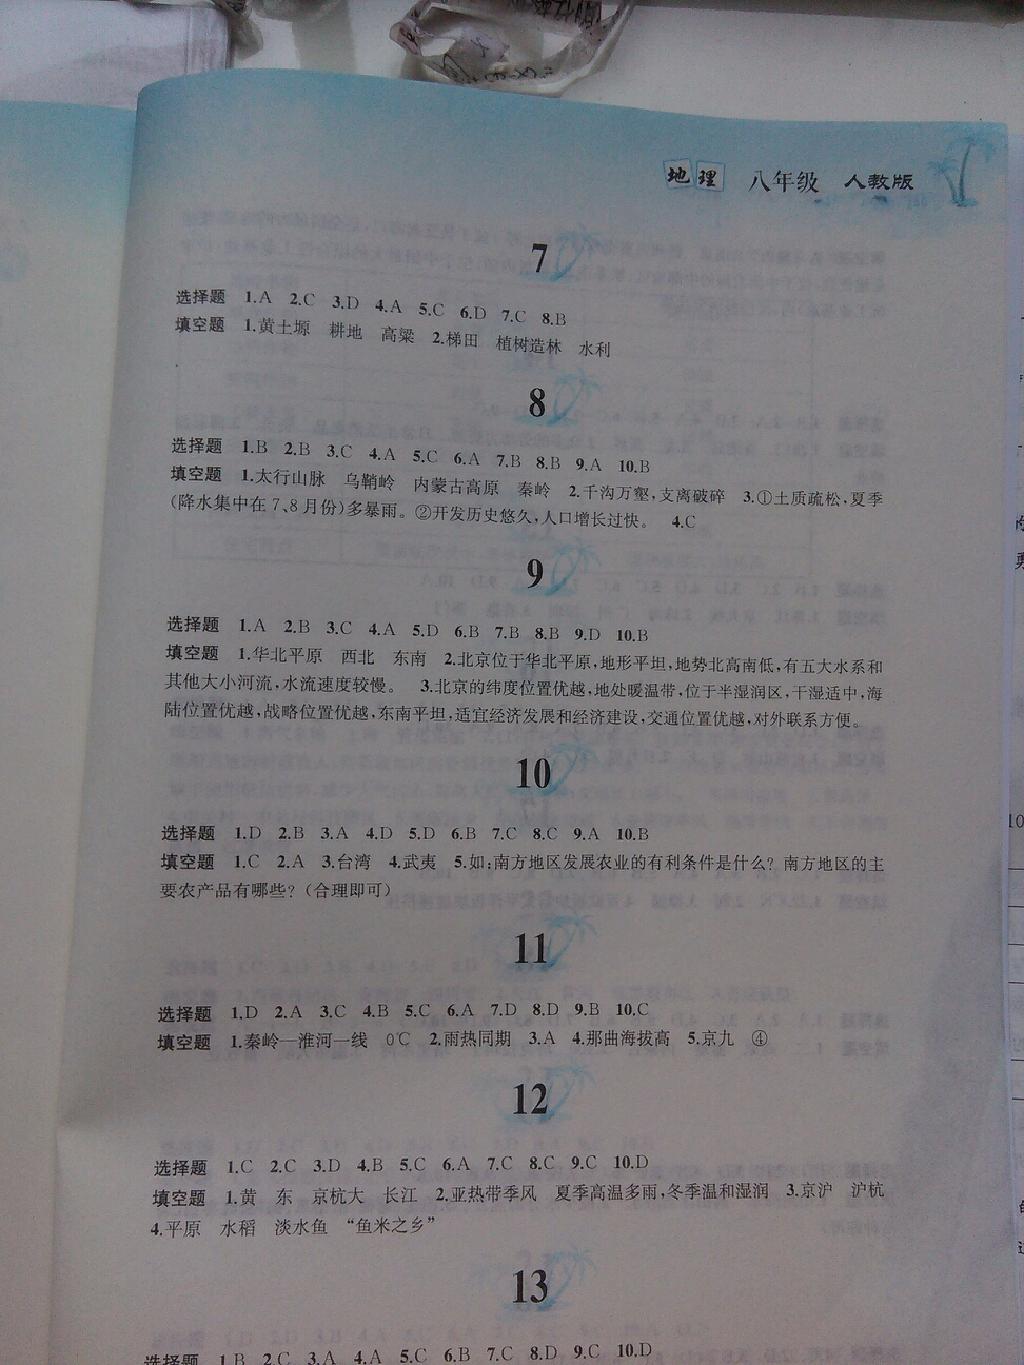 地理 八年级 人教版
7
选择题 1.A 2.C 3.D 4.A 5.C 6.D 7.C 8.B
填空题 1.黄土塬 耕地 高粱 2.梯田 植树造林 水利
8
选择题 1.B 2.B 3.C 4.A 5.C 6.A 7.B 8.B 9.A 10.B
填空题 1.太行山脉 乌鞘岭 内蒙古高原 秦岭 2.千沟万壑,支离破碎 3.①土质疏松,夏季
(降水集中在7、8月份)多暴雨。②开发历史悠久,人口增长过快。 4.C
9
选择题 1.A 2.B 3.C 4.A 5.D 6.B 7.B 8.B 9.D 10.B
填空题 1.华北平原 西北 东南 2.北京位于华北平原,地形平坦,地势北高南低,有五大水系和
其他大小河流,水流速度较慢。 3.北京的纬度位置优越,地处暖温带,位于半湿润区,干湿适中,海
陆位置优越,战略位置优越,东南平坦,适宜经济发展和经济建设,交通位置优越,对外联系方便。
10
选择题 1.D 2.B 3.A 4.D 5.D 6.B 7.C 8.C 9.A 10.B
填空题 1.C 2.A 3.台湾 4.武夷 5.如:南方地区发展农业的有利条件是什么? 南方地区的主
要农产品有哪些?(合理即可)
11
选择题 1.D 2.A 3.C 4.B 5.C 6.A 7.D 8.D 9.B 10.C
填空题 1.秦岭—淮河一线 0℃ 2.雨热同期 3.A 4.那曲海拔高 5.京九 ④
12
选择题 1.C 2.C 3.D 4.B 5.C 6.A 7.C 8.C 9.C 10.D
填空题 1.黄 东 京杭大 长江 2.亚热带季风 夏季高温多雨,冬季温和湿润 3.京沪 沪杭
4.平原 水稻 淡水鱼 “鱼米之乡”
13
选择题 1.B 2.C 3.A 4.A 5.C 6.B 7.C 8.D 9.C 10.D